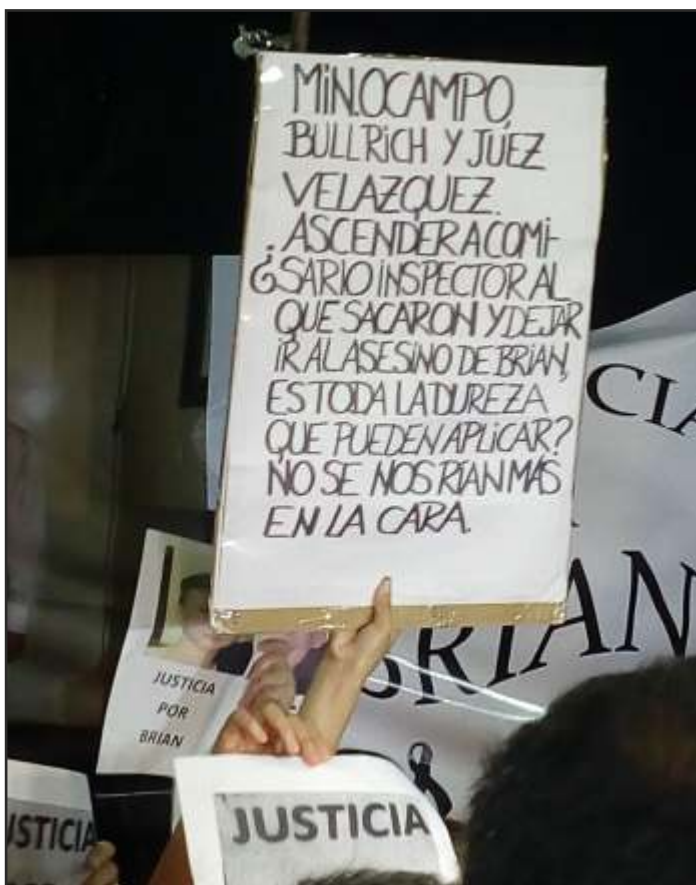 MIN. OCAMPO,
BULLRICH Y JUEZ
VELAZQUEZ.
¿ASCENDER A COMI-
SARIO INSPECTOR AL
QUE SACARON Y DEJAR
IR AL ASESINO DE BRIAN,
ES TODA LA DUREZA
QUE PUEDEN APLICAR?
NO SE NOS RIAN MÁS
EN LA CARA.
CIA
BRIAN
JUSTICIA
POR
BRIAN
JUSTICIA
STICIA